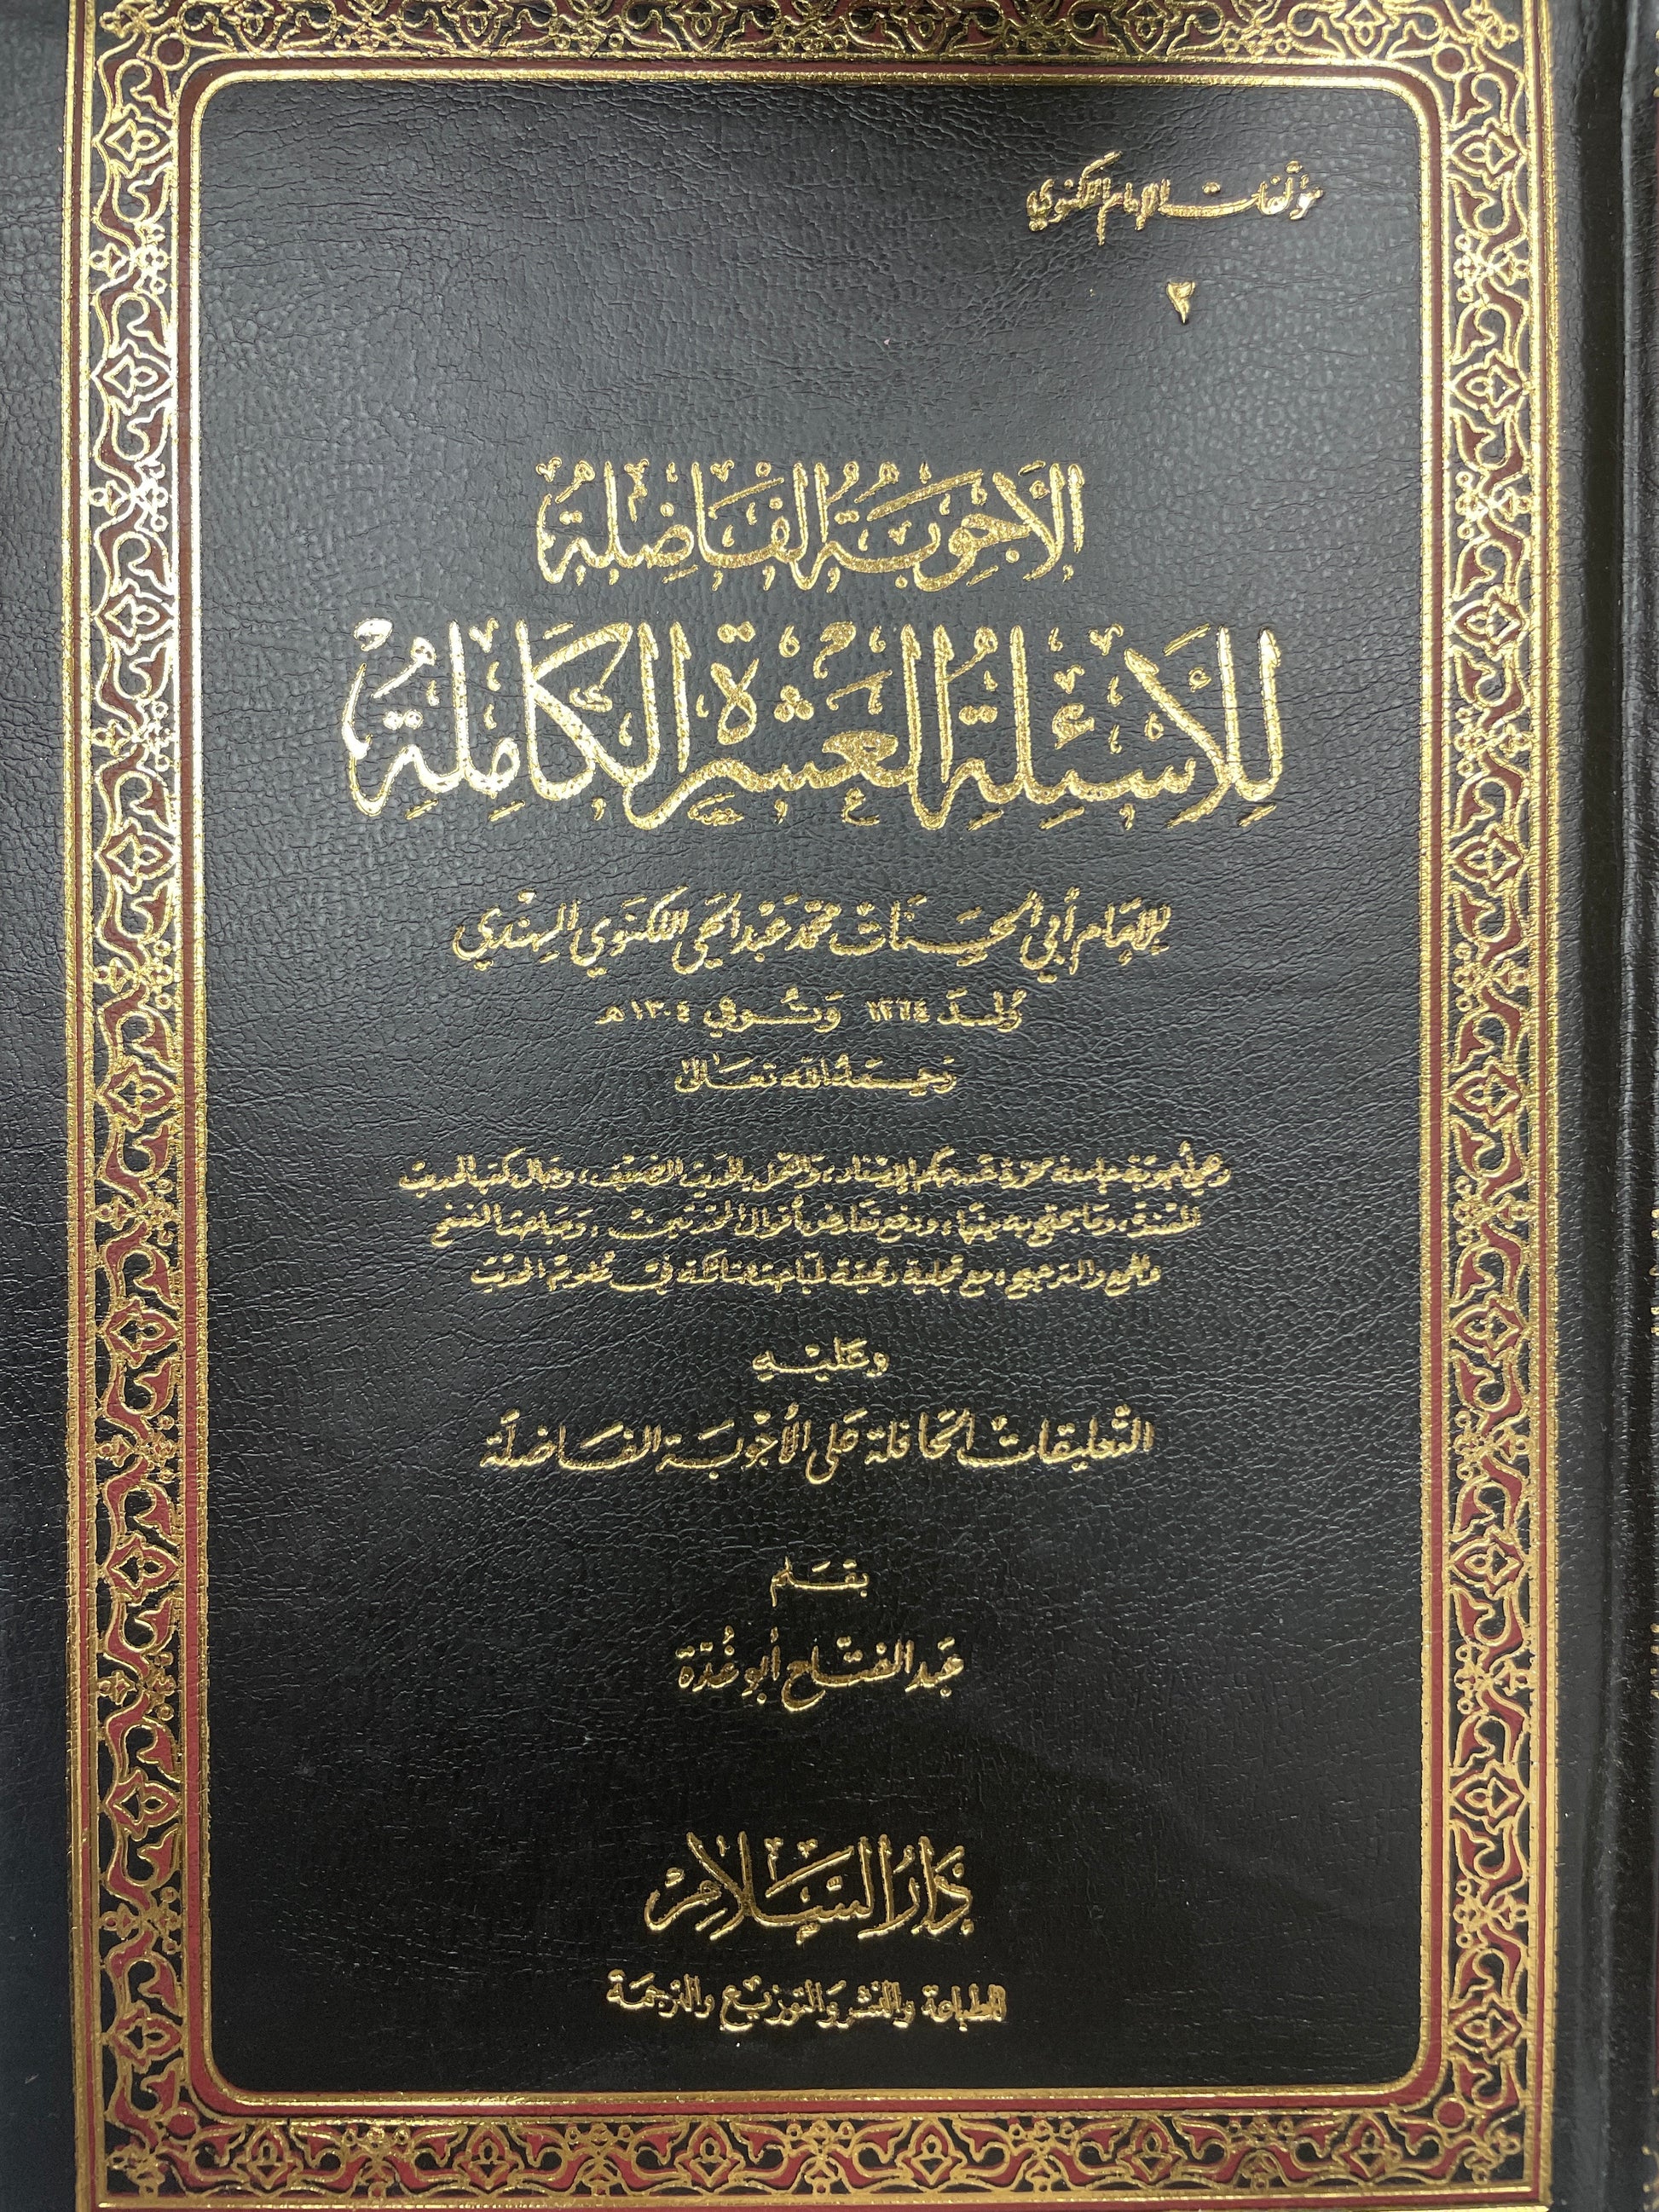 مؤلفات الإمام اللكنوي
٢
الأَجْوِبَةُ الفَاضِلَةُ
لِلأَسْئِلَةِ العَشَرَةِ الكَامِلَةِ
للإمام أبي الحَسَنَات محمّد عَبْد الحَيّ اللكنَوي الهِنْدي
وُلِدَ ١٢٦٤ وَتُوفي ١٣٠٤ هـ
رَحِمَهُ الله تعَالىٰ
وهي أجوبة جامعة محررة في حكم الإسناد، والعمل بالحديث الضعيف، وحال كتب الحديث
المسندة، وما يحتج به منها، ودفع تعارض أقوال المحدثين، ومباحث النسخ
والجمع والترجيح، مع تجلية دقيقة لمباحث شائكة في علوم الحديث
وعَليْهِ
التّعليقات الحَافلة عَلى الأجْوبَة الفَاضلَة
بقَلم
عَبد الفتّاح أبو غُدّة
دَارُ السَّلَامِ
للطباعة والنشر والتوزيع والترجمَة